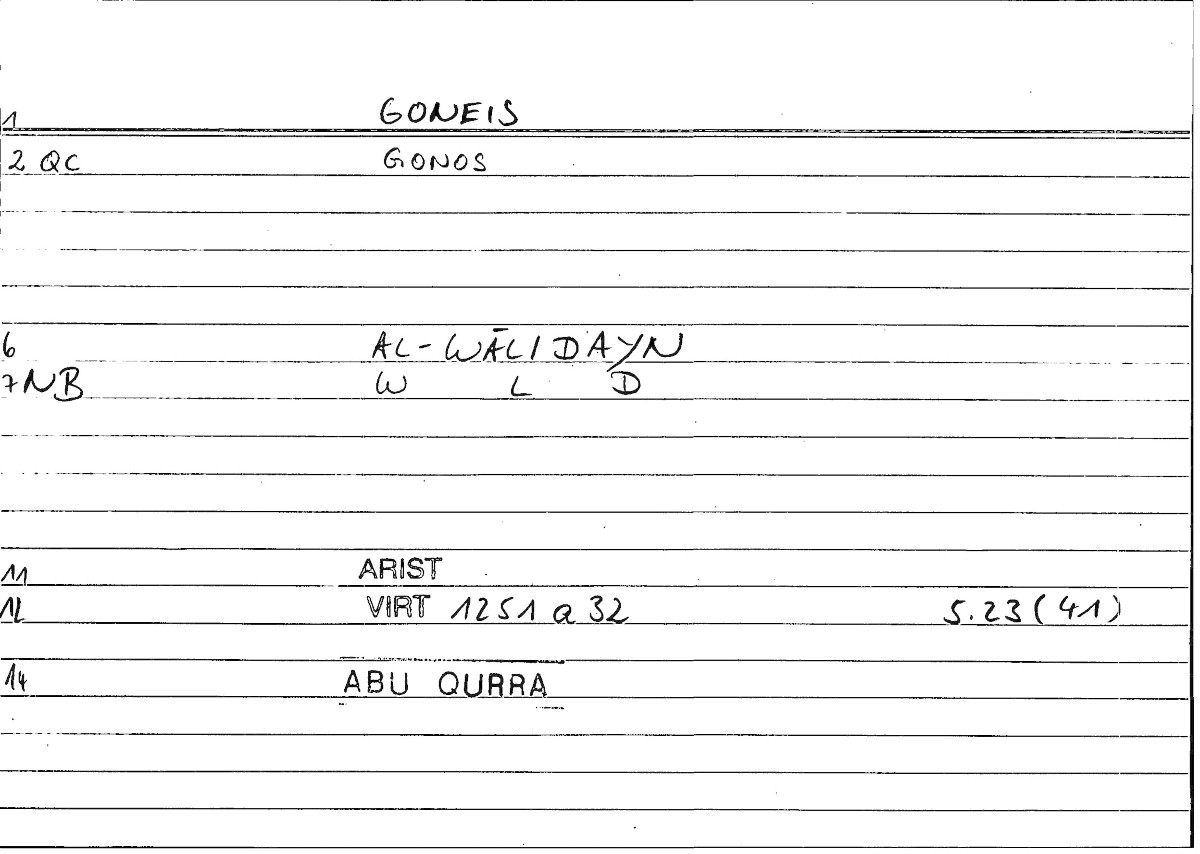 1 GONEIS
2 QC GONOS
6 AL-WĀLIDAYN
7 NB W L D
11 ARIST
12 VIRT 1251 a 32 5.23 (41)
14 ABU QURRA